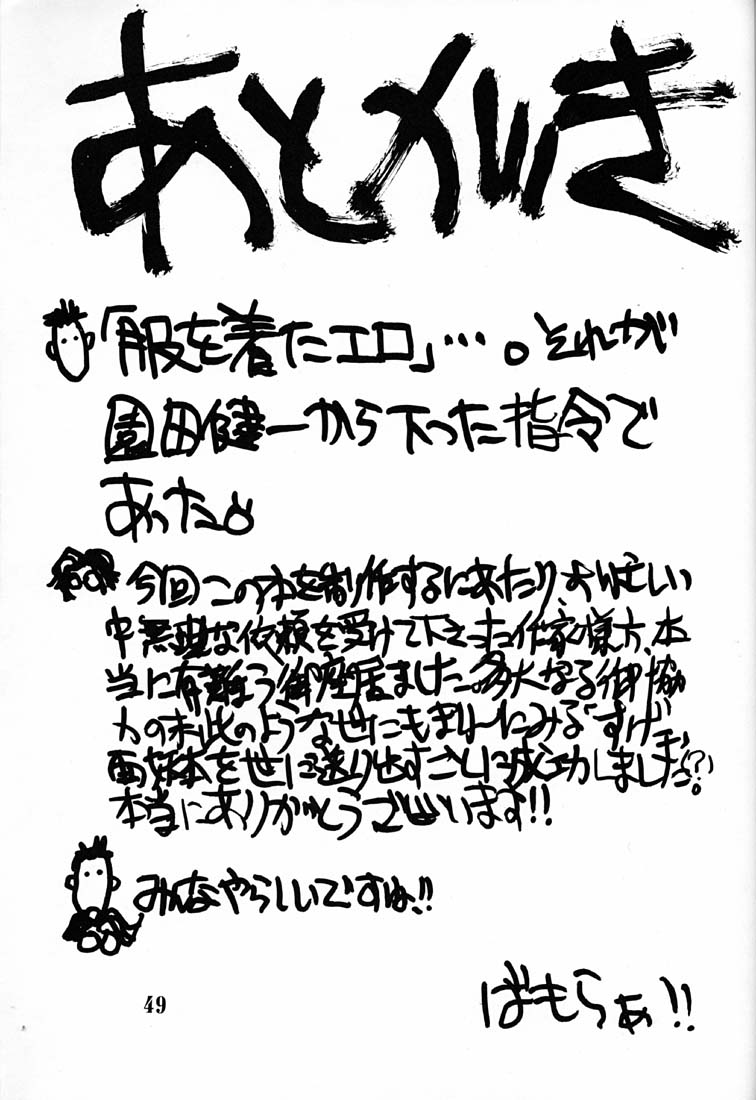 あとがき
「服を着たエロ」…。それが
園田健一から下った指令で
あった。
今回この本を制作するにあたり、お忙しい
中無理な依頼を受けて下さった作家様方、本
当に有難う御座居ました。多大なる御協
力の末此のような世にもまれにみる「すげー
面妖本」を世に送り出すことに成功しました(?)
本当にありがとうございます!!
みんなやらしいですね!!
ばもらぁ!!
49